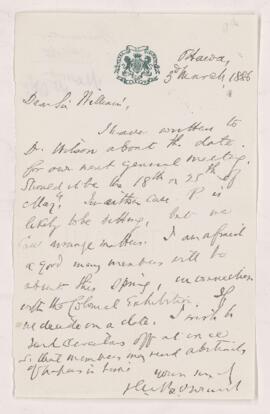 Ottawa,
3rd March, 1886
Dear Sir William,
I have written to
Dr Wilson about the date
for our next general meeting.
Should it be the 18th or 25th of
May? In either case P is
likely to be sitting, but we
can arrange matters. I am afraid
a good many members will be
about this Spring, in connection
with the Colonial Exhibition. If
we decide on a date. I wish to
send circulars off at once
so that members may send abstracts
of papers in time